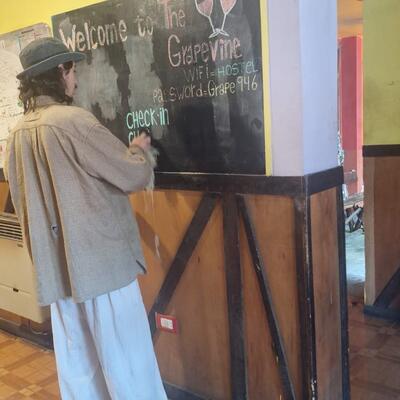 Welcome to The
Grapevine
WiFi=HOSTEL
Password=Grape946
CHECK-in